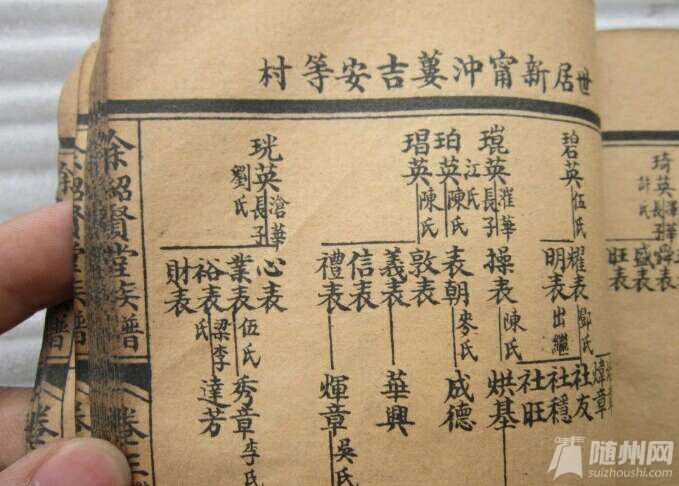 世居新甯沖蔞吉安等村
琦英
長子
許氏
舜表
盛表
旺表
碧英伍氏
耀表鄧氏
明表出繼
社友
社穩
社旺
琨英
長子
江氏
操表陳氏
烘基
珀英陳氏
表朝麥氏
成德
琩英陳氏
敦表
義表
信表
禮表
華興
煇章吳氏
珖英
滄華長子
劉氏
心表
業表伍氏
裕表梁李氏
財表
秀章李氏
達芳
余紹賢堂族譜
卷三
随州网
suizhoushi.com